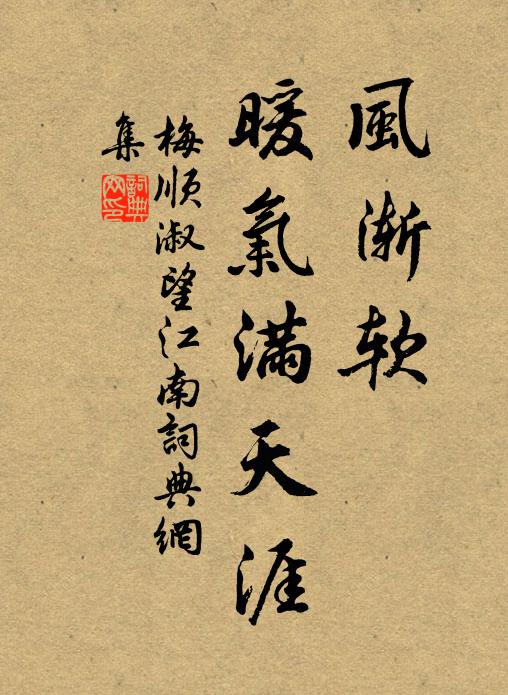 風漸软
暖氣滿天涯
梅顺淑望江南詞典網
集
詞典
网印